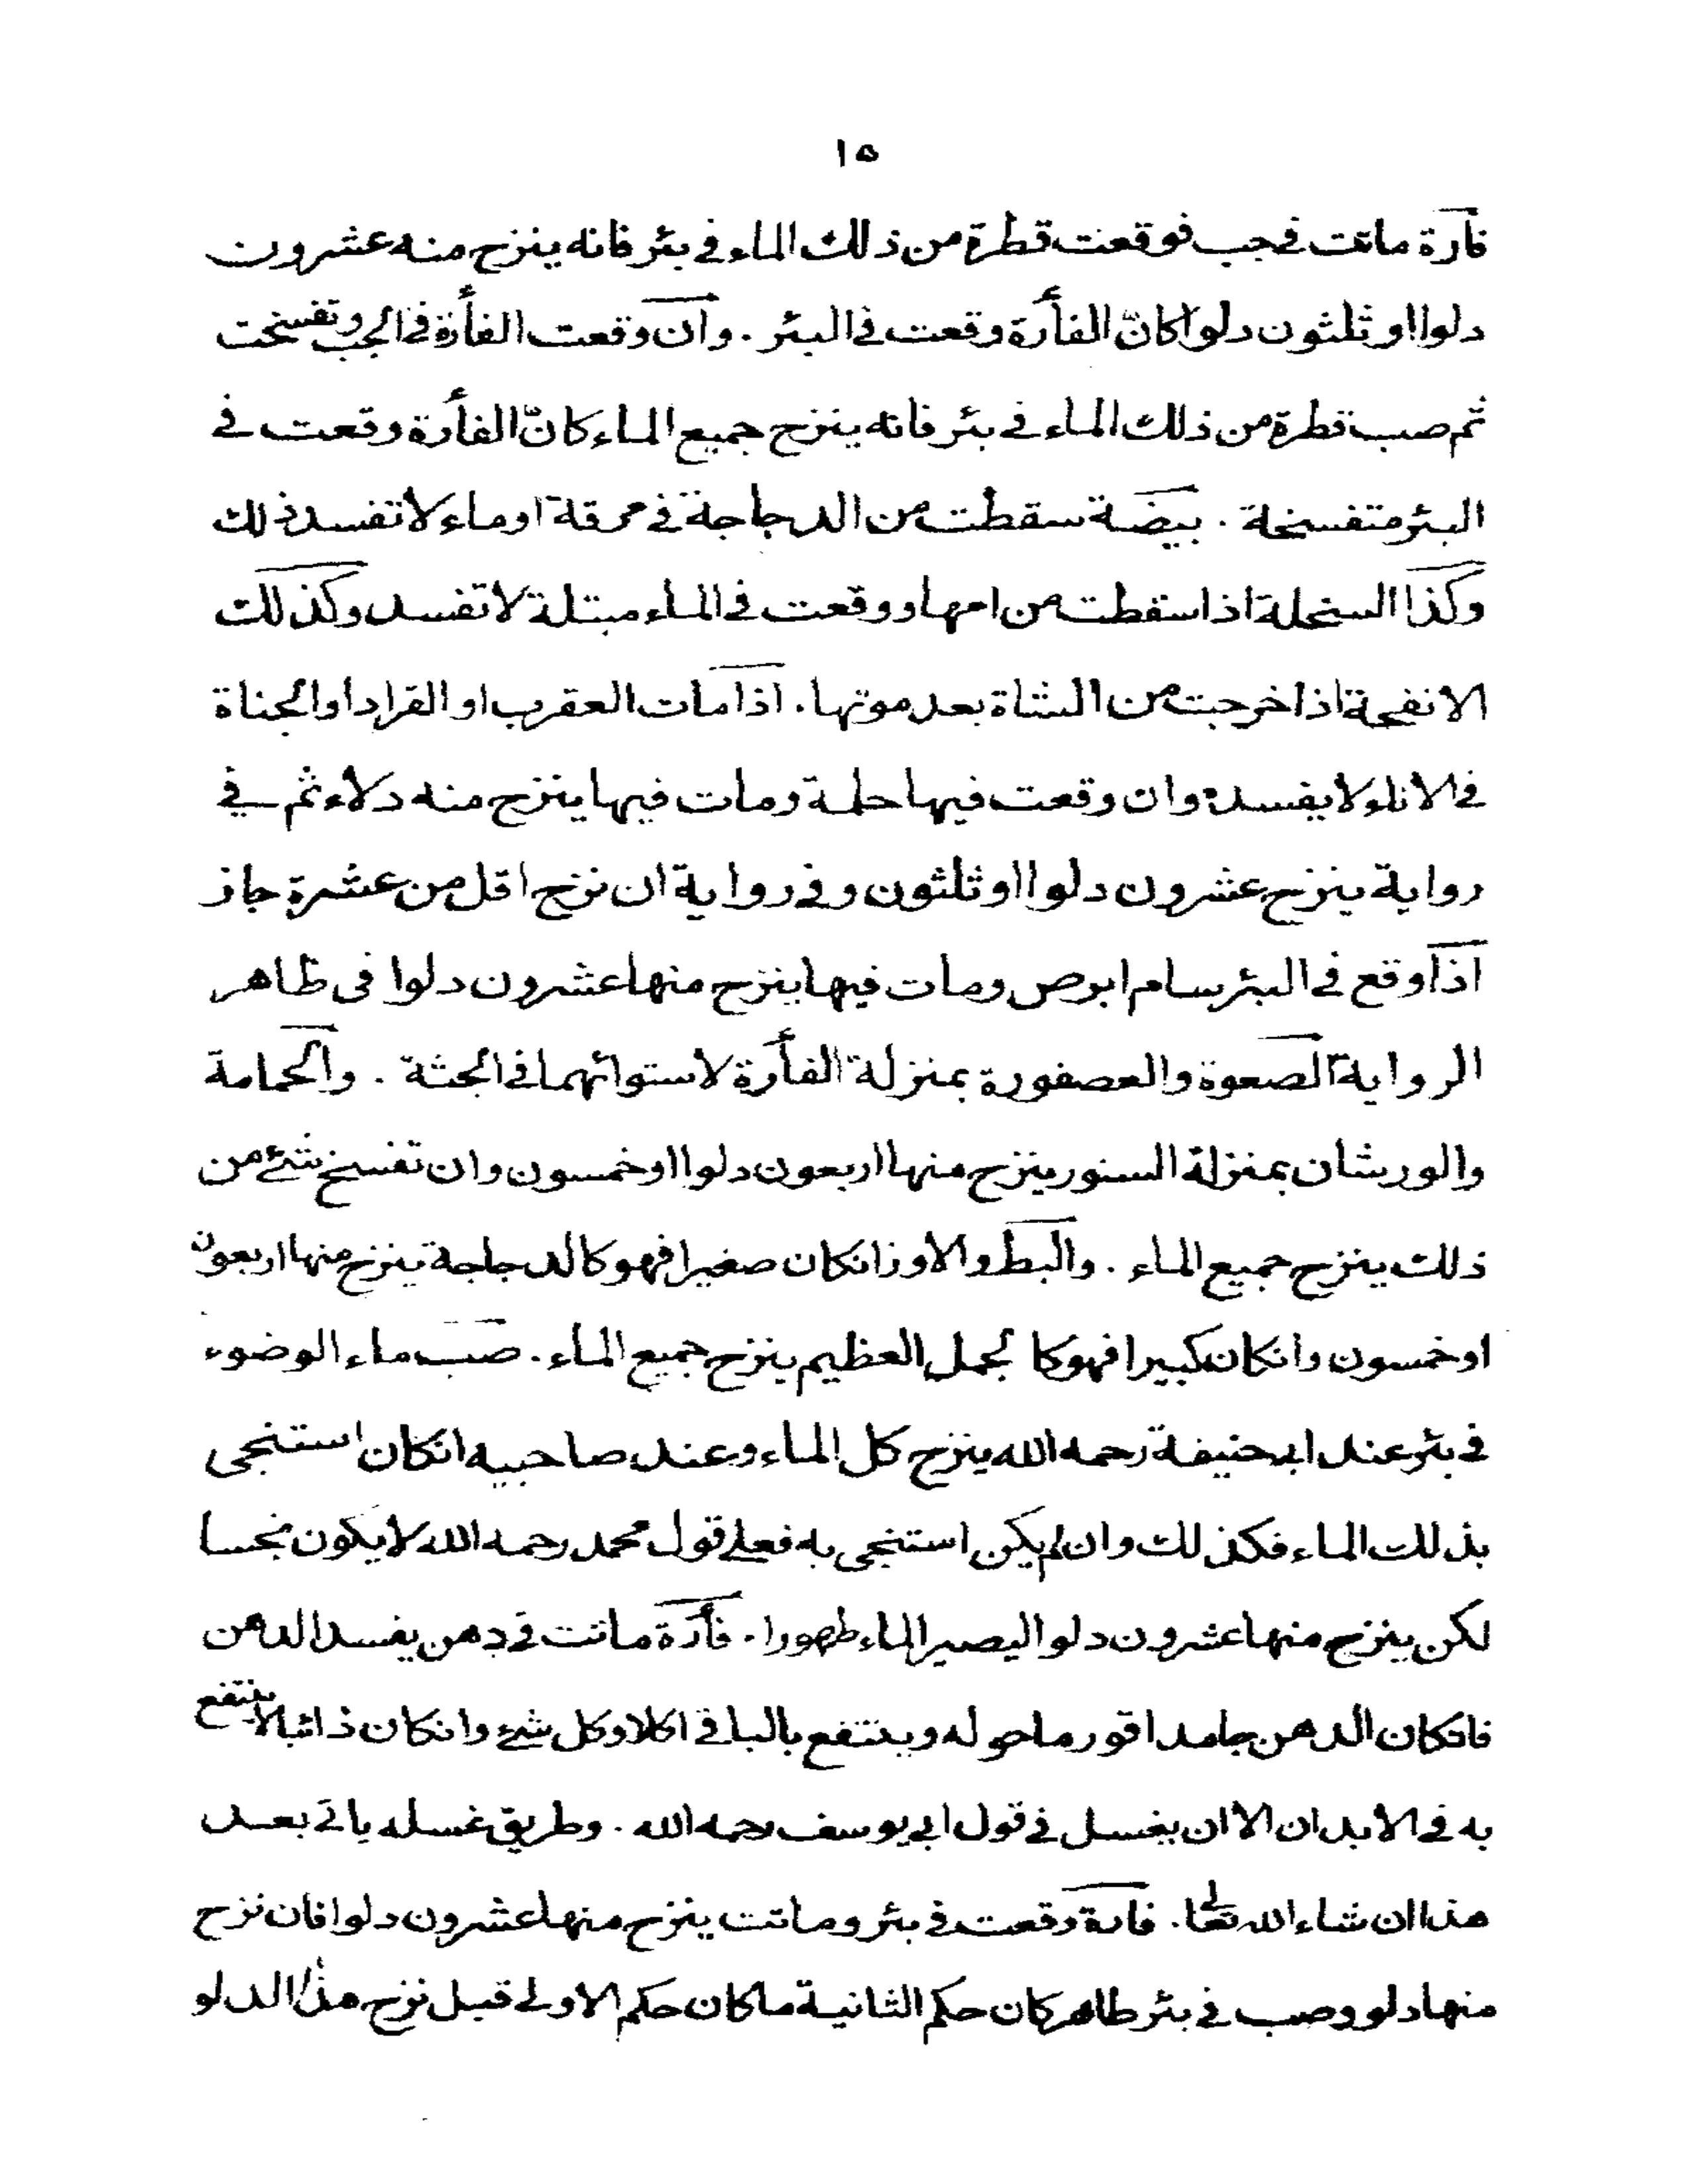 ١٥
فأرة ماتت في جب فوقعت قطرة من ذلك الماء في بئر فانه ينزح منه عشرون
دلوا او ثلثون دلوا كانّ الفأرة وقعت في البئر . وان وقعت الفأرة في الجب وتفسخت
ثم صب قطرة من ذلك الماء في بئر فانه ينزح جميع الماء كانّ الفأرة وقعت في
البئر متفسخة . بيضة سقطت من الدجاجة في مرقة او ماء لا تفسد ذلك
وكذا السخلة اذا سقطت من امها ووقعت في الماء مبتلة لا تفسد وكذلك
الانفحة اذا خرجت من الشاة بعد موتها . اذا مات العقرب او القراد او الجناة
في الاناء لا يفسده وان وقعت فيها حلمة ومات فيها ينزح منه دلاء ثم في
رواية ينزح عشرون دلوا او ثلثون وفي رواية ان نزح اقل من عشرة جاز
اذا وقع في البئر سام ابرص ومات فيها ينزح منها عشرون دلوا فى ظاهر
الرواية الصعوة والعصفورة بمنزلة الفأرة لاستوائهما في الجثة . والحمامة
والورشان بمنزلة السنور ينزح منها اربعون دلوا او خمسون وان تفسخ شئ من
ذلك ينزح جميع الماء . والبط والاوز انكان صغيرا فهو كالدجاجة ينزح منها اربعون
او خمسون وانكان كبيرا فهو كا لجمل العظيم ينزح جميع الماء . صب ماء الوضوء
في بئر عند ابي حنيفة رحمه الله ينزح كل الماء وعند صاحبيه انكان استنجى
بذلك الماء فكذلك وان لم يكن استنجى به فعلى قول محمد رحمه الله لا يكون نجسا
لكن ينزح منها عشرون دلوا ليصير الماء طهورا . فأرة ماتت في دهن يفسد الدهن
فانكان الدهن جامدا قور ماحوله وينتفع بالباقي اكلا وكل شئ وانكان ذائبا لا ينتفع
به في الابدان الا ان يغسل في قول ابي يوسف رحمه الله . وطريق غسله ياتي بعد
هذا ان شاء الله تعالى . فارة وقعت في بئر وماتت ينزح منها عشرون دلوا فان نزح
منها دلو وصب في بئر طاهر كان حكم الثانية ماكان حكم الاولى قبل نزح هذا الدلو